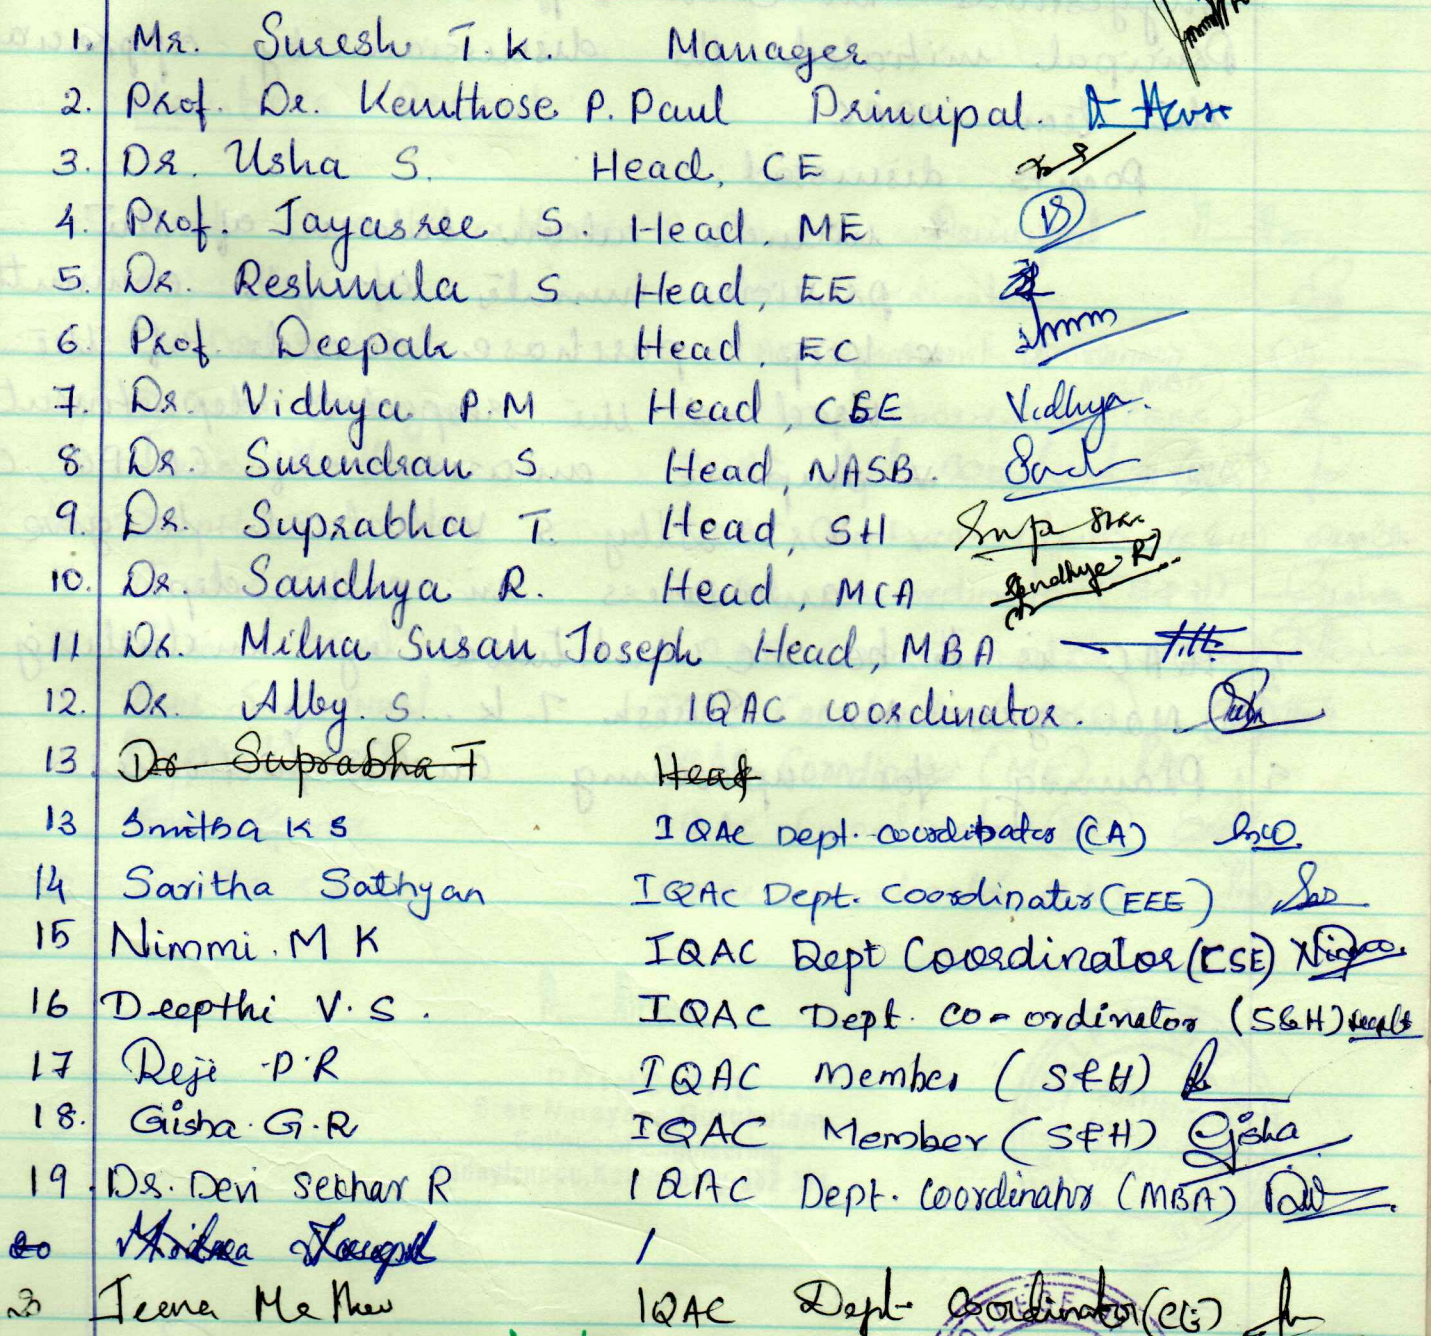 1. Mr. Suresh T.K. Manager
2. Prof. Dr. Kemthose P. Paul Principal.
3. Dr. Usha S. Head, CE
4. Prof. Jayasree S. Head, ME
5. Dr. Reshmila S Head, EE
6. Prof. Deepak Head, EC
7. Dr. Vidhya P.M Head, CSE Vidhya.
8. Dr. Surendran S. Head, NASB.
9. Dr. Suprabha T. Head, SH
10. Dr. Sandhya R. Head, MCA Sandhya R
11. Dr. Milna Susan Joseph Head, MBA
12. Dr. Alby. S. IQAC coordinator.
13. Dr Suprabha T Head
13 Smitha K S IQAC Dept. coordinator (CA)
14 Saritha Sathyan IQAC Dept. Coordinator (EEE)
15 Nimmi. M K IQAC Dept Coordinator (CSE)
16 Deepthi V.S. IQAC Dept. Co-ordinator (S&H)
17 Reji P.R IQAC Member (S&H)
18. Gisha G.R IQAC Member (S&H) Gisha
19. Dr. Devi Sekhar R IQAC Dept. Coordinator (MBA)
20
Teena Mathew IQAC Dept Coordinator (CE)